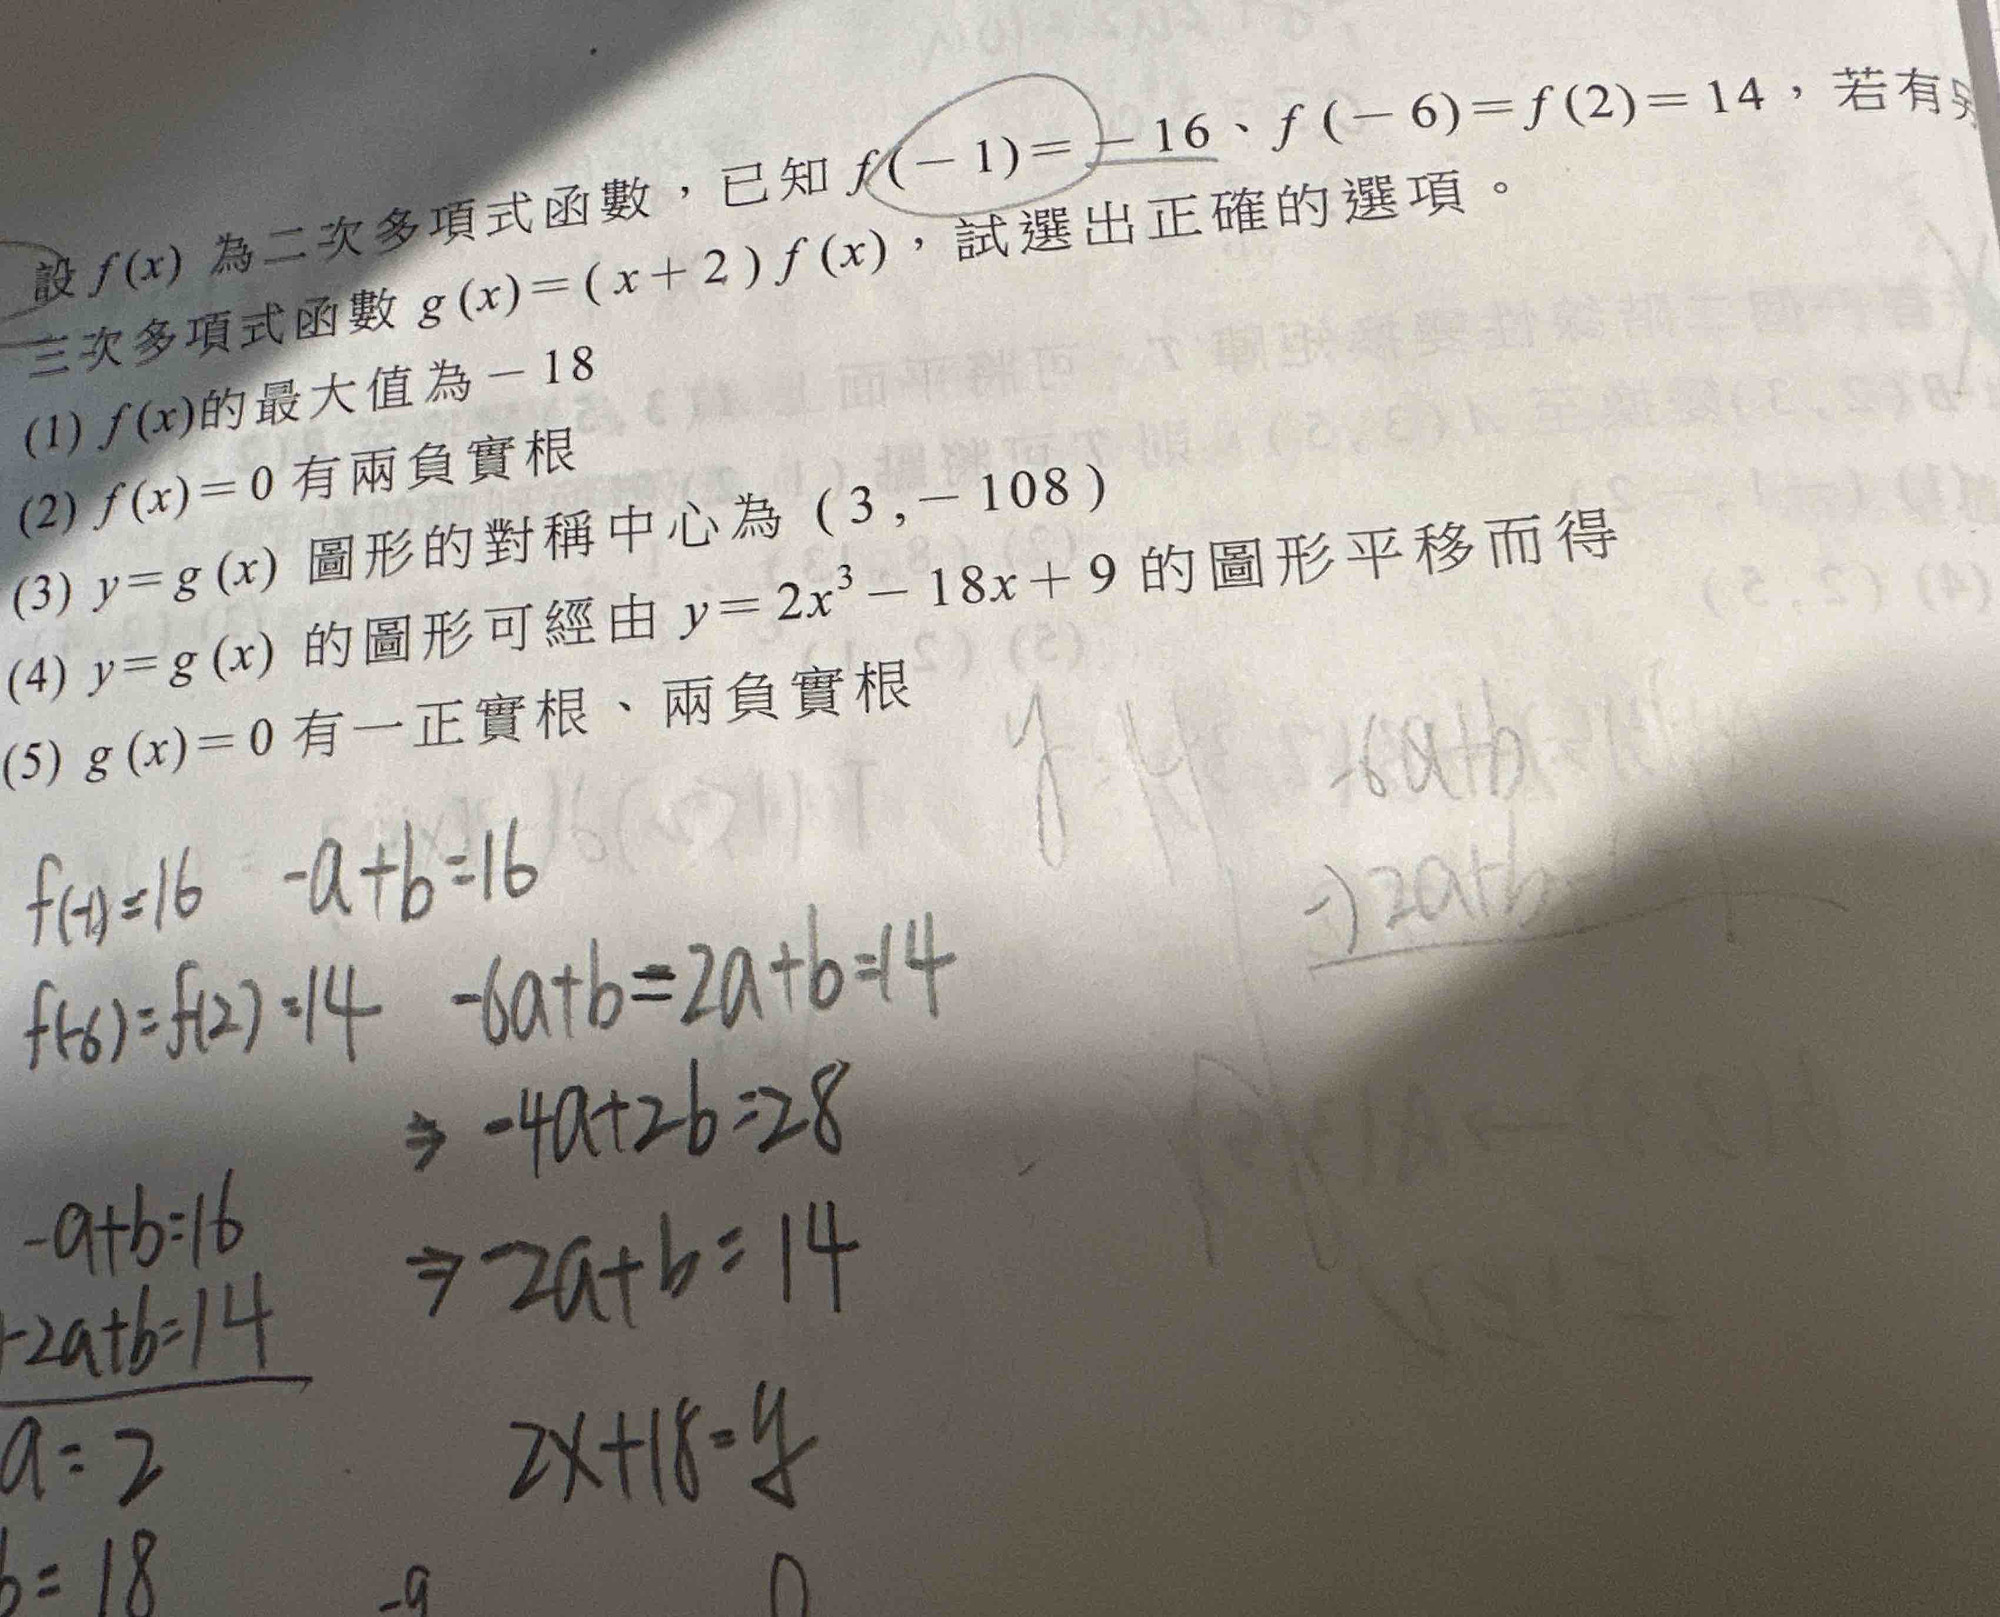 設 f(x) 為二次多項式函數，已知 f(－1)＝－16、f(－6)＝f(2)＝14，若有另
三次多項式函數 g(x)＝(x＋2)f(x)，試選出正確的選項。
(1) f(x)的最大值為－18
(2) f(x)＝0 有兩負實根
(3) y＝g(x) 圖形的對稱中心為 (3,－108)
(4) y＝g(x) 的圖形可經由 y＝2x³－18x＋9 的圖形平移而得
(5) g(x)＝0 有一正實根、兩負實根
-6a+b
-) 2a+b
f(-1)=16 -a+b=16
f(-6)=f(2)=14 -6a+b=2a+b=14
⇒ -4a+2b=28
⇒ -2a+b=14
-a+b=16
-2a+b=14
a=2
2x+18=y
b=18
-9 0